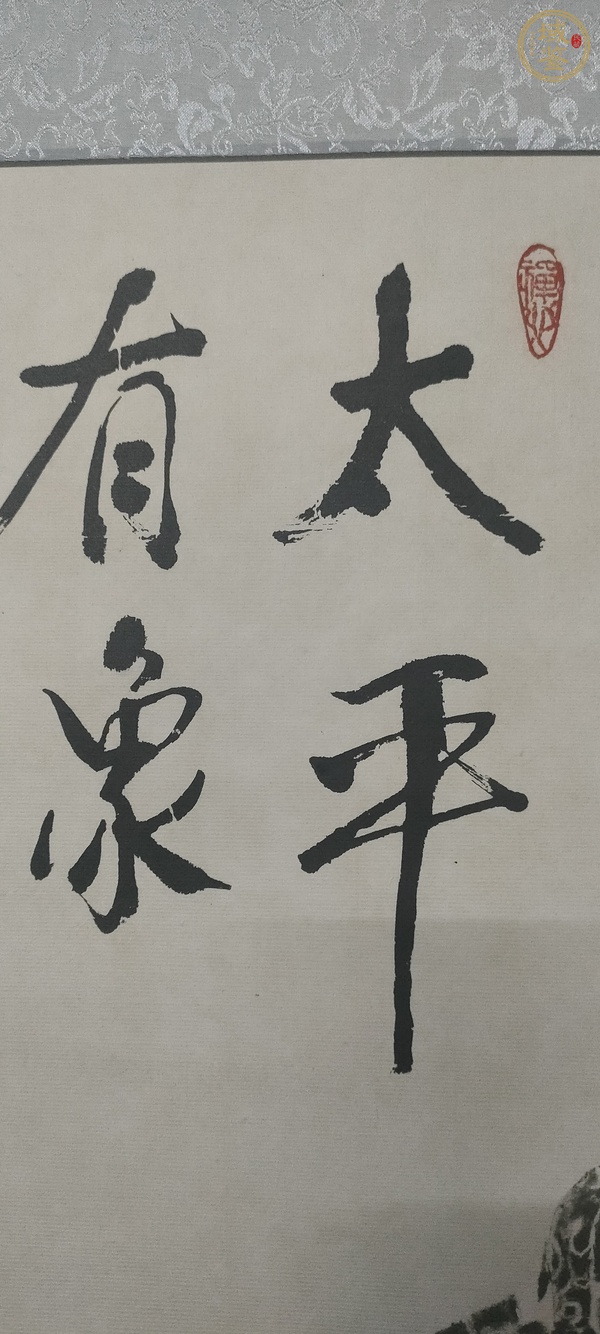 太平
有象